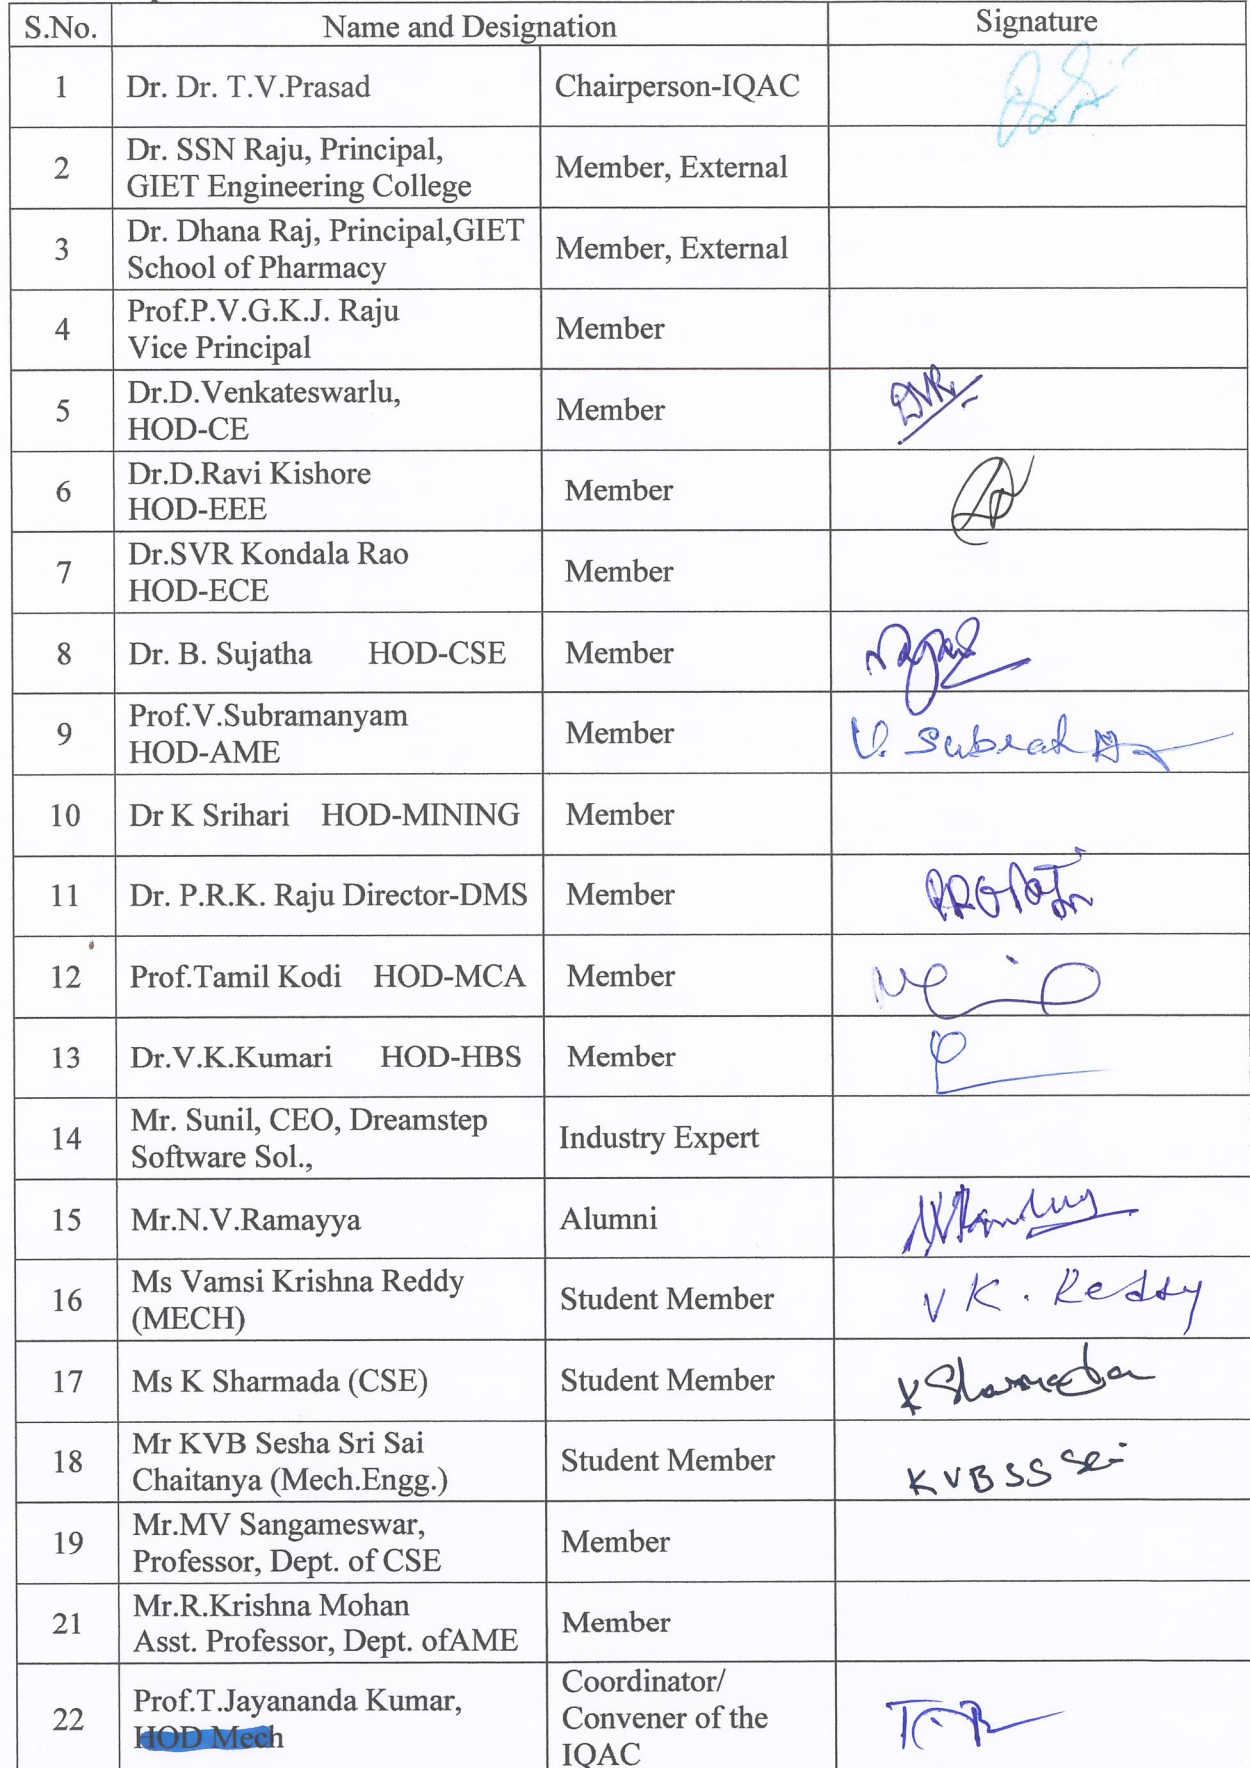 S.No. Name and Designation Signature
1 Dr. Dr. T.V.Prasad Chairperson-IQAC
2 Dr. SSN Raju, Principal,
GIET Engineering College Member, External
3 Dr. Dhana Raj, Principal,GIET
School of Pharmacy Member, External
4 Prof.P.V.G.K.J. Raju
Vice Principal Member
5 Dr.D.Venkateswarlu,
HOD-CE Member DVR
6 Dr.D.Ravi Kishore
HOD-EEE Member
7 Dr.SVR Kondala Rao
HOD-ECE Member
8 Dr. B. Sujatha HOD-CSE Member
9 Prof.V.Subramanyam
HOD-AME Member V. Subrah
10 Dr K Srihari HOD-MINING Member
11 Dr. P.R.K. Raju Director-DMS Member
12 Prof.Tamil Kodi HOD-MCA Member
13 Dr.V.K.Kumari HOD-HBS Member
14 Mr. Sunil, CEO, Dreamstep
Software Sol., Industry Expert
15 Mr.N.V.Ramayya Alumni
16 Ms Vamsi Krishna Reddy
(MECH) Student Member V K. Reddy
17 Ms K Sharmada (CSE) Student Member K Sharmada
18 Mr KVB Sesha Sri Sai
Chaitanya (Mech.Engg.) Student Member KVBSS Sai
19 Mr.MV Sangameswar,
Professor, Dept. of CSE Member
21 Mr.R.Krishna Mohan
Asst. Professor, Dept. ofAME Member
22 Prof.T.Jayananda Kumar,
HOD Mech Coordinator/
Convener of the
IQAC